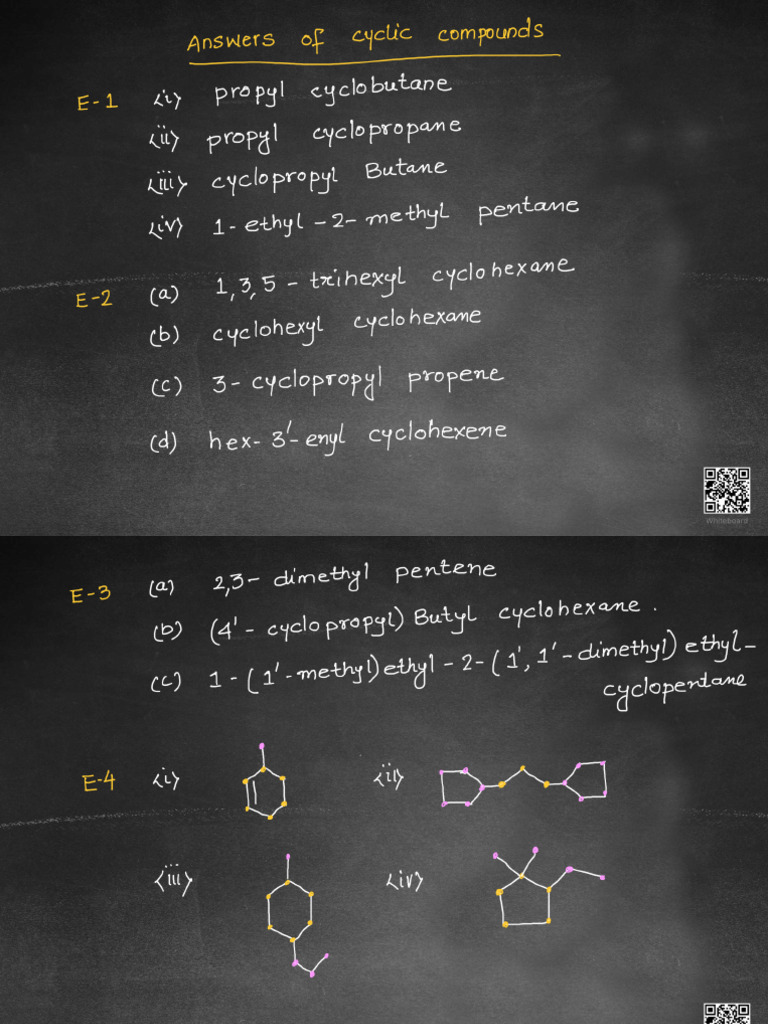 Answers of cyclic compounds
E-1 <i> propyl cyclobutane
<ii> propyl cyclopropane
<iii> cyclopropyl Butane
<iv> 1-ethyl-2-methyl pentane
E-2 (a) 1,3,5-trihexyl cyclohexane
(b) cyclohexyl cyclohexane
(c) 3-cyclopropyl propene
(d) hex-3'-enyl cyclohexene
Whiteboard
E-3 (a) 2,3-dimethyl pentene
(b) (4'-cyclopropyl) Butyl cyclohexane.
(c) 1-(1'-methyl) ethyl-2-(1',1'-dimethyl) ethyl-
cyclopentane
E-4 <i> <ii>
<iii> <iv>